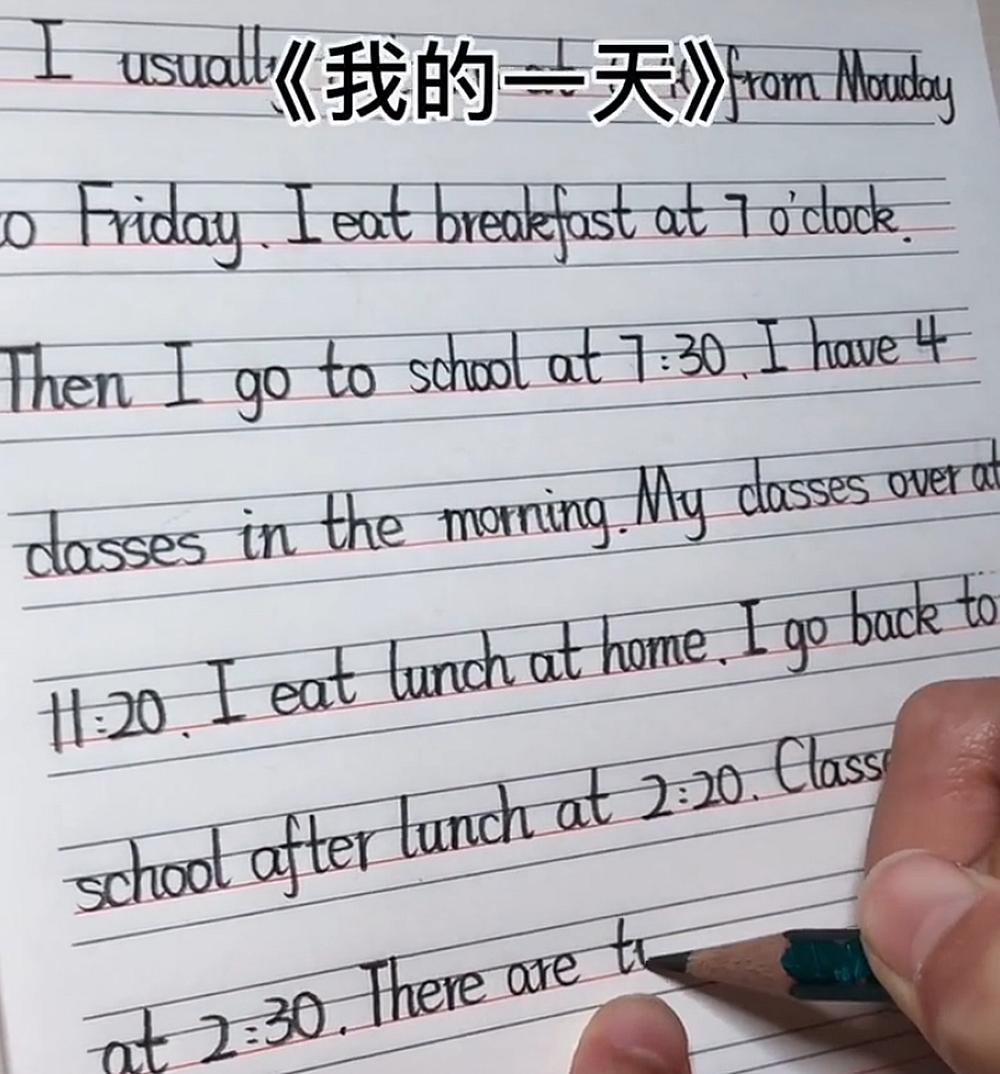 《我的一天》
I usually at from Mouday
o Friday. I eat breakfast at 7 o'clock.
Then I go to school at 7:30. I have 4
classes in the morning. My classes over at
11:20. I eat lunch at home. I go back to
school after lunch at 2:20. Class
at 2:30. There are